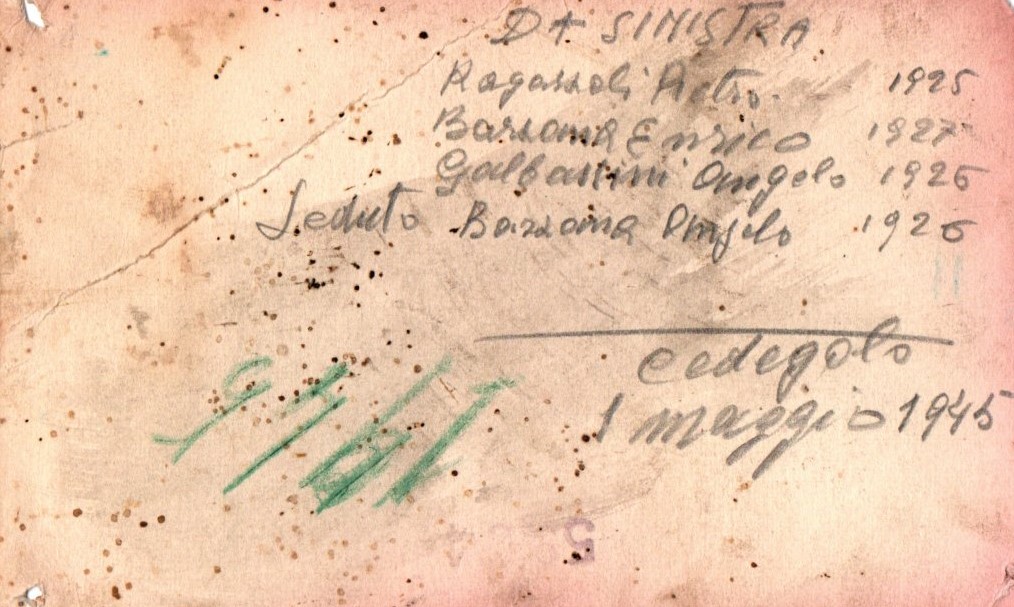 DA SINISTRA
Ragazzoli Pietro. 1925
Bazzana Enrico 1927
Galbassini Angelo 1926
Seduto Bazzana Angelo 1926
Cedegolo
1 maggio 1945
5